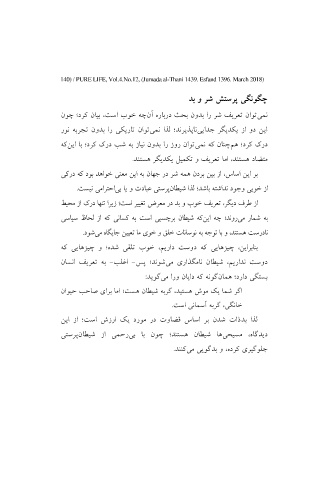 140) / PURE LIFE, Vol.4.No.12, (Jumada al-Thani 1439. Esfand 1396. March 2018)
چگونگی پرستش شر و بد
نمی‌توان تعریف شر را بدون بحث درباره آن‌چه خوب است، بیان کرد؛ چون
این دو از یکدیگر جدایی‌ناپذیرند؛ لذا نمی‌توان تاریکی را بدون تجربه نور
درک کرد؛ هم‌چنان که نمی‌توان روز را بدون نیاز به شب درک کرد؛ با این‌که
متضاد هستند، اما تعریف و تکمیل یکدیگر هستند.
بر این اساس، از بین بردن همه شر در جهان به این معنی خواهد بود که درکی
از خوبی وجود نداشته باشد؛ لذا شیطان‌پرستی عبادت و یا بی‌احترامی نیست.
از طرف دیگر، تعریف خوب و بد در معرض تغییر است؛ زیرا تنها درک از محیط
به شمار می‌روند؛ چه این‌که شیطان برچسبی است به کسانی که از لحاظ سیاسی
نادرست هستند، و با توجه به نوسانات خلق و خوی ما تعیین جایگاه می‌شود.
بنابراین، چیزهایی که دوست داریم، خوب تلقی شده؛ و چیزهایی که
دوست نداریم، شیطان نامگذاری می‌شوند؛ پس- اغلب- به تعریف انسان
بستگی دارد؛ همان‌گونه که دایان ورا می‌گوید:
اگر شما یک موش هستید، گربه شیطان است؛ اما برای صاحب حیوان
خانگی، گربه آسمانی است.
لذا بدذات شدن بر اساس قضاوت در مورد یک ارزش است؛ از این
دیدگاه، مسیحی‌ها شیطان هستند؛ چون با بی‌رحمی از شیطان‌پرستی
جلوگیری کرده، و بدگویی می‌کنند.